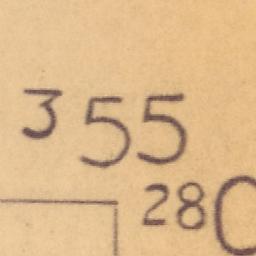 355
280